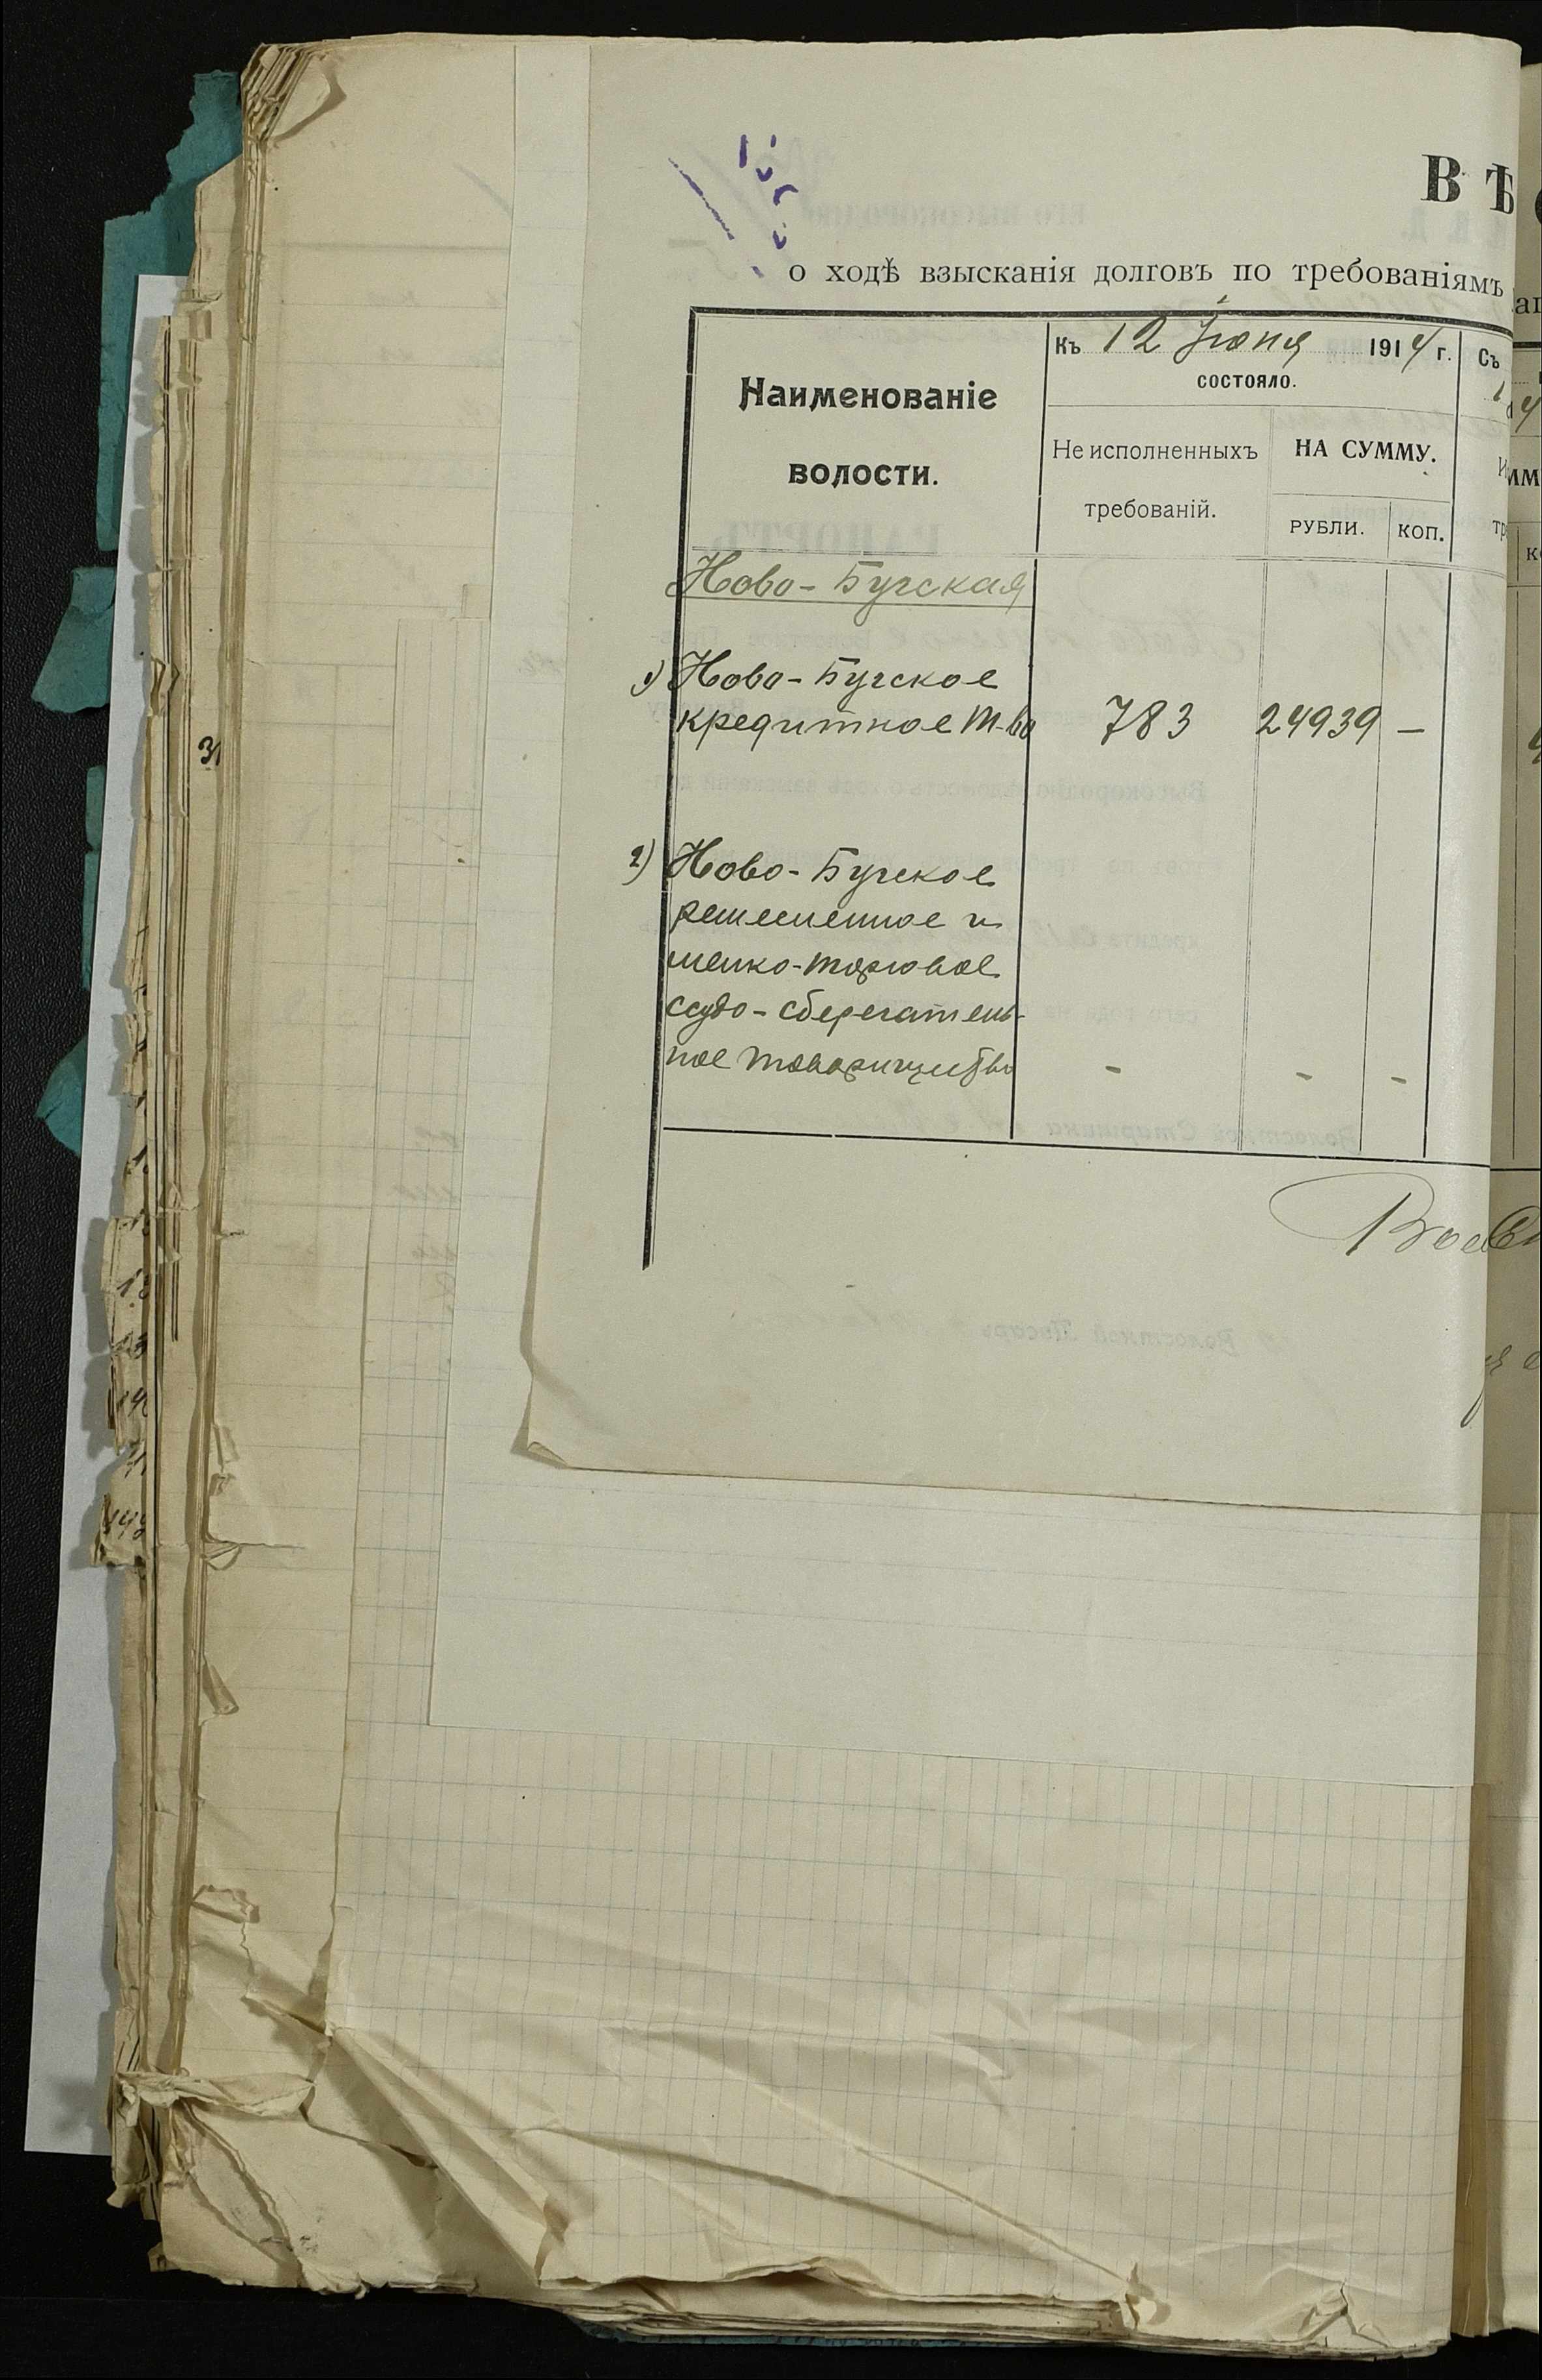 ВѢ
о ходѣ взысканія долговъ по требованіямъ
Наименованіе
волости.
Къ 12 Іюня 1914 г.
состояло.
Не исполненныхъ
требованій.
НА СУММУ.
РУБЛИ.
КОП.
Съ
Ново-Бугская
1) Ново-Бугское
кредитное т-во 783 24939 —
2) Ново-Бугское
ремесленное и
мелко-торговое
ссудо-сберегатель-
ное товарищество - - -
31